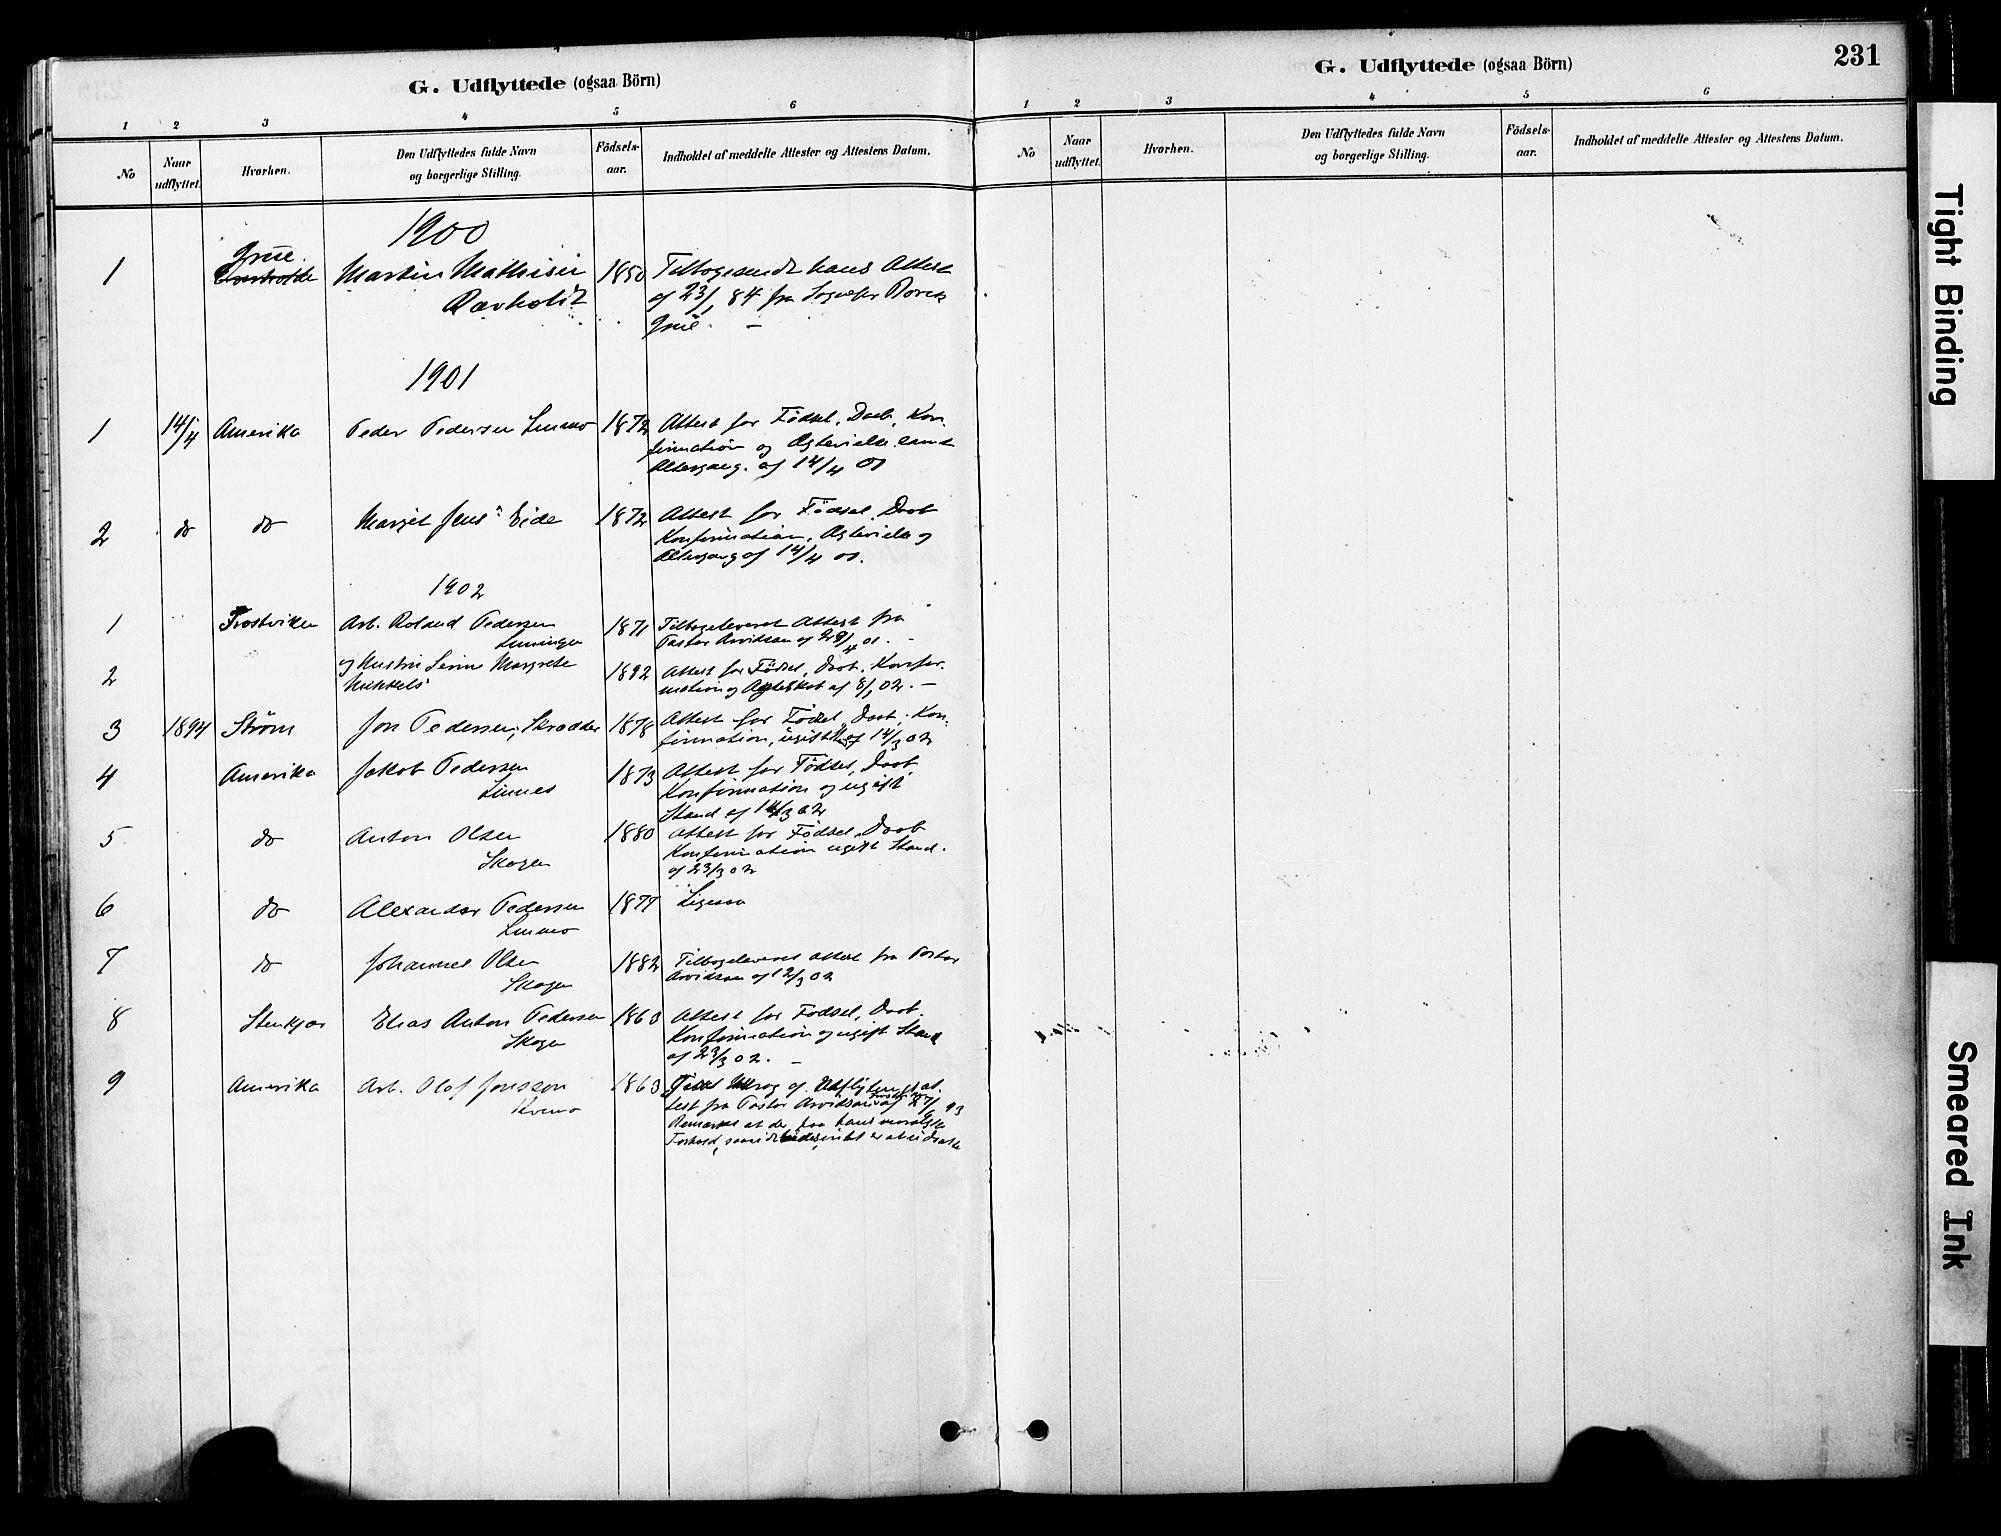 G. Udflyttede (ogsaa Börn)
1 2 3 4 5 6
No
Naar udflyttet.
Hvorhen.
Den Udflyttedes fulde Navn
og borgerlige Stilling.
Födsels-
aar.
Indholdet af meddelte Attester og Attestens Datum.
1900
1 Grue Martin Mathisen 1850 Tilbagesendt hans Attest
af 23/1 84 fra
Grue. –
1901
1 14/4 Amerika Peder Pedersen Linmo 1872 Attest for Fødsel, Daab, Kon-
firmation og samt
Altergang. af 14/4 01
2 do do Margit Jens Eide 1872 Attest for Fødsel, Daab
Konfirmation, og
Altergang af 14/4 01.
1902
1 Frostviken Arb. Roland Pedersen 1871 Tilbageleveret Attest fra
Pastor Arvidson af
2 og Hustru Serine Margrete 1892 Attest for Fødsel, Daab, Konfir-
Mikkels mation og Ægteskab af 8/1 02. –
3 1894 Strøm Jon Pedersen, Skrædder 1878 Attest for Fødsel, Daab, Kon-
firmation, ugift af 14/3 02
4 Amerika Jakob Pedersen 1873 Attest for Fødsel, Daab
Linnes Konfirmation og ugift
Stand af 14/3 02
5 do Anton Olsen 1880 Attest for Fødsel, Daab
Skogen Konfirmation ugift Stand.
af 23/3 02
6 do Alexander Pedersen 1877 Ligesaa
Linmo
7 do Johannes Olsen 1882 Tilbageleveret Attest fra Pastor
Skogen Arvidson af 12/3 02
8 Stenkjær Elias Anton Pedersen 1863 Attest for Fødsel, Daab.
Skogen Konfirmation og ugift Stand
af 23/3 02. –
9 Amerika Arb. Olof Jonsson 1863 af Udflytningsat-
Kvemo test fra Pastor Arvidson af 93
at der paa hans moralske
Forhold,
G. Udflyttede (ogsaa Börn)
231
1 2 3 4 5 6
No
Naar
udflyttet.
Hvorhen.
Den Udflyttedes fulde Navn
og borgerlige Stilling.
Födsels-
aar.
Indholdet af meddelte Attester og Attestens Datum.
Tight Binding
Smeared Ink